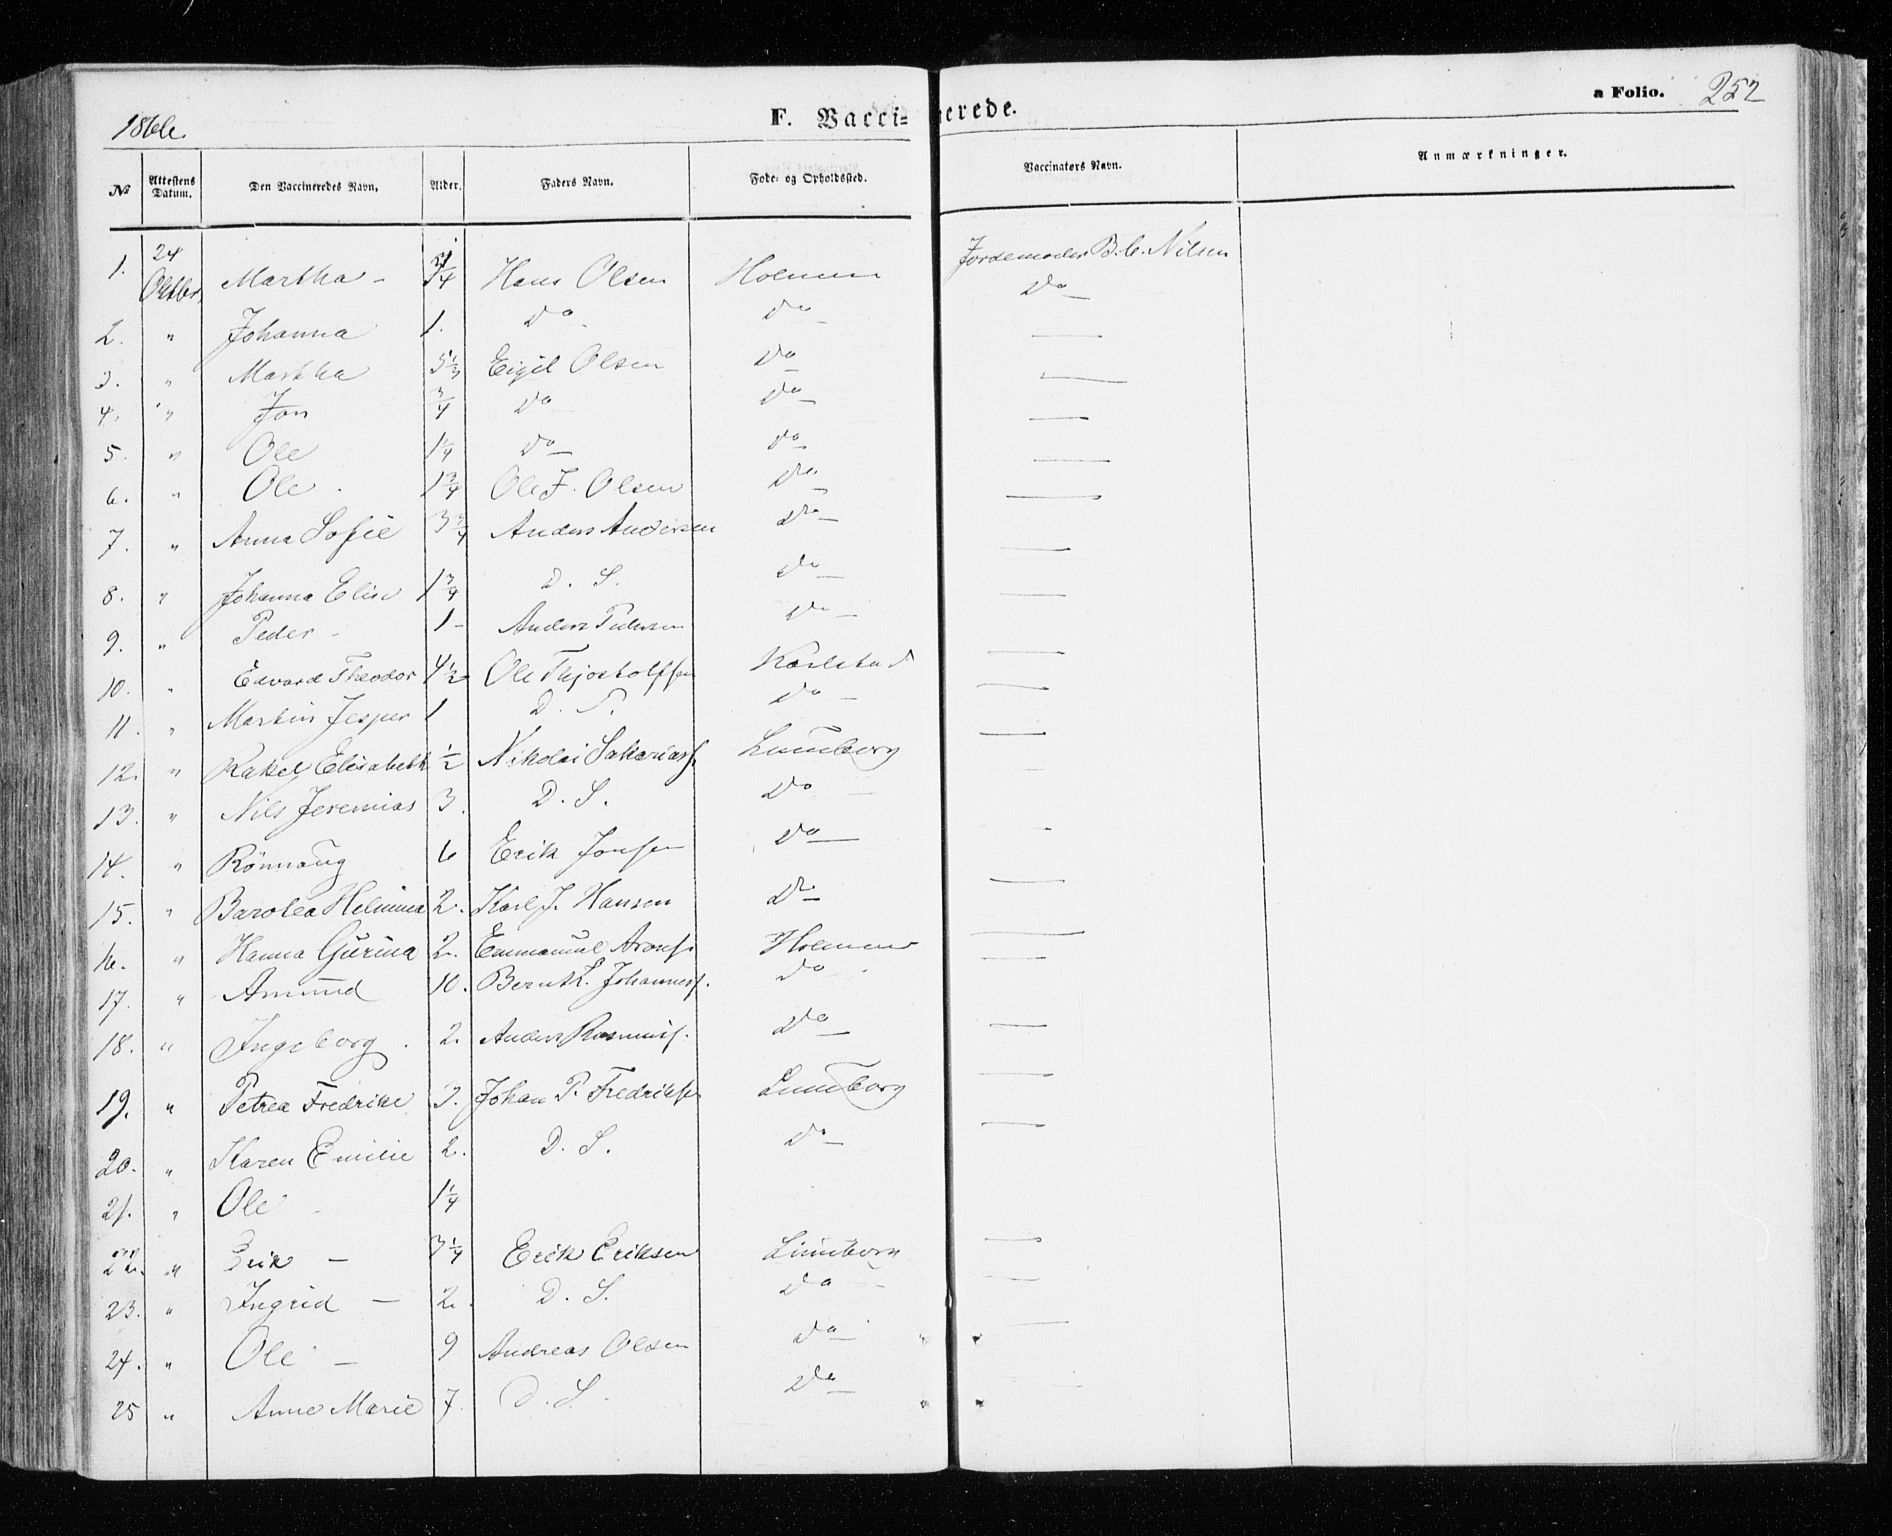 1866. F. Vaccinerede. a Folio. 252
No Attestens Datum. Den Vaccineredes Navn. Alder. Faders Navn. Føde- og Opholdssted. Vaccinatørs Navn. Anmærkninger.
1. 24 Oktbr. Martha - Hans Olsen Holmen Jordemoder B. C. Nilsen
2. " Johanna 1. Do Do Do
3. " Martha 5 1/3 Eigil Olsen Do —
4. " Jon 3/4 Do Do —
5. " Ole 1 1/4 Do Do —
6. " Ole 1 3/4 Ole J. Olsen Do —
7. " Anna Sofie 3 3/4 Anders Andersen Do —
8. " Johanna Elise 1 3/4 D. S. Do —
9. " Peder - 1 - Anders Pedersen Do —
10. " Edvard Theodor 4 1/2 Ole Thjostolfsen Karlstad —
11. " Martin Jesper 1 D. S. Do —
12. " Rakel Elisabeth 1/2 Nikolai Sakariass. Lunnborg —
13. " Nils Jeremias 3. D. S. Do —
14. " Rönnaug 6 Erik Jonsen Do —
15. " Barolea Helmina 2. Karl J. Hansen Do —
16. " Hanna Gurina 2. Emmanuel Arons. Holmen —
17. " Amund 10. Bernt L. Johanness. Do —
18. " Ingeborg. 2. Anders Rasmuss. Do —
19. " Petrea Fredrike 3. Johan P. Fredriks. Lunnborg —
20. " Karen Emilie 2. D. S. Do —
21. " Ole 1 1/4
22. " Erik — 3 1/4 Erik Eriksen Lunnborg —
23. " Ingrid — 2. D. S. Do —
24. " Ole — 9 Andreas Olsen Do —
25 " Anne Marie 7. D. S. Do